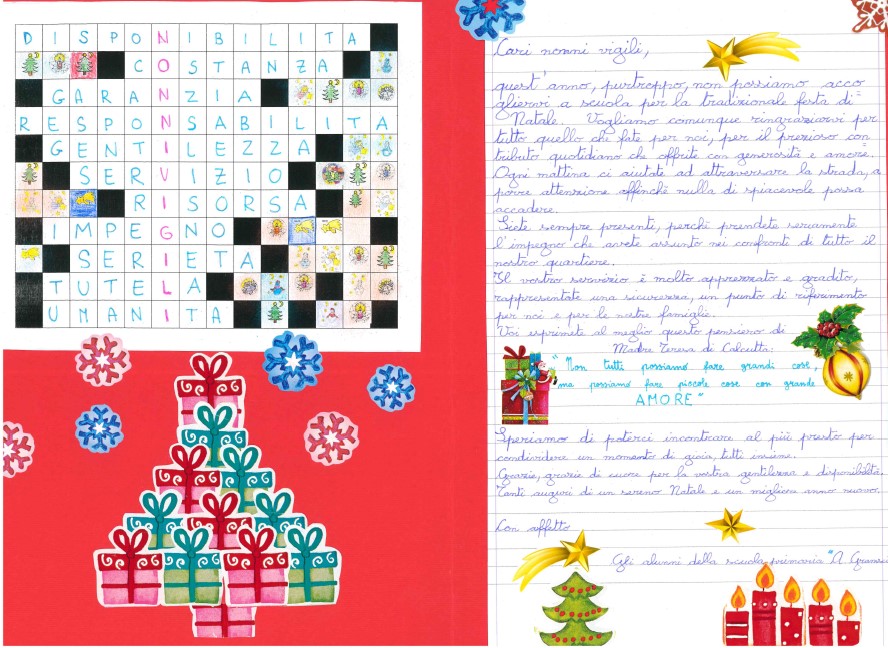 DISPONIBILITA
COSTANZA
GARANZIA
RESPONSABILITA
GENTILEZZA
SERVIZIO
RISORSA
IMPEGNO
SERIETA
TUTELA
UMANITA
Cari nonni vigili,
quest'anno, purtroppo, non possiamo acco
glievvi a scuola per la tradizionale festa di
Natale. Vogliamo comunque ringraziarvi per
tutto quello che fate per noi, per il prezioso con
tributo quotidiano che offrite con generosità e amore.
Ogni mattina ci aiutate ad attraversare la strada, a
porre attenzione affinché nulla di spiacevole possa
accadere.
Siete sempre presenti, perché prendete seriamente
l'impegno che avete assunto nei confronti di tutto il
nostro quartiere.
Il vostro servizio è molto apprezzato e gradito,
rappresentate una sicurezza, un punto di riferimento
per noi e per le nostre famiglie.
Voi esprimete al meglio questo pensiero di
Madre Teresa di Calcutta:
"Non tutti possiamo fare grandi cose,
ma possiamo fare piccole cose con grande
AMORE"
Speriamo di poterci incontrare al più presto per
condividere un momento di gioia, tutti insieme.
Grazie, grazie di cuore per la vostra gentilezza e disponibilità.
Tanti auguri di un sereno Natale e un migliore anno nuovo.
Con affetto
Gli alunni della scuola primaria "A.